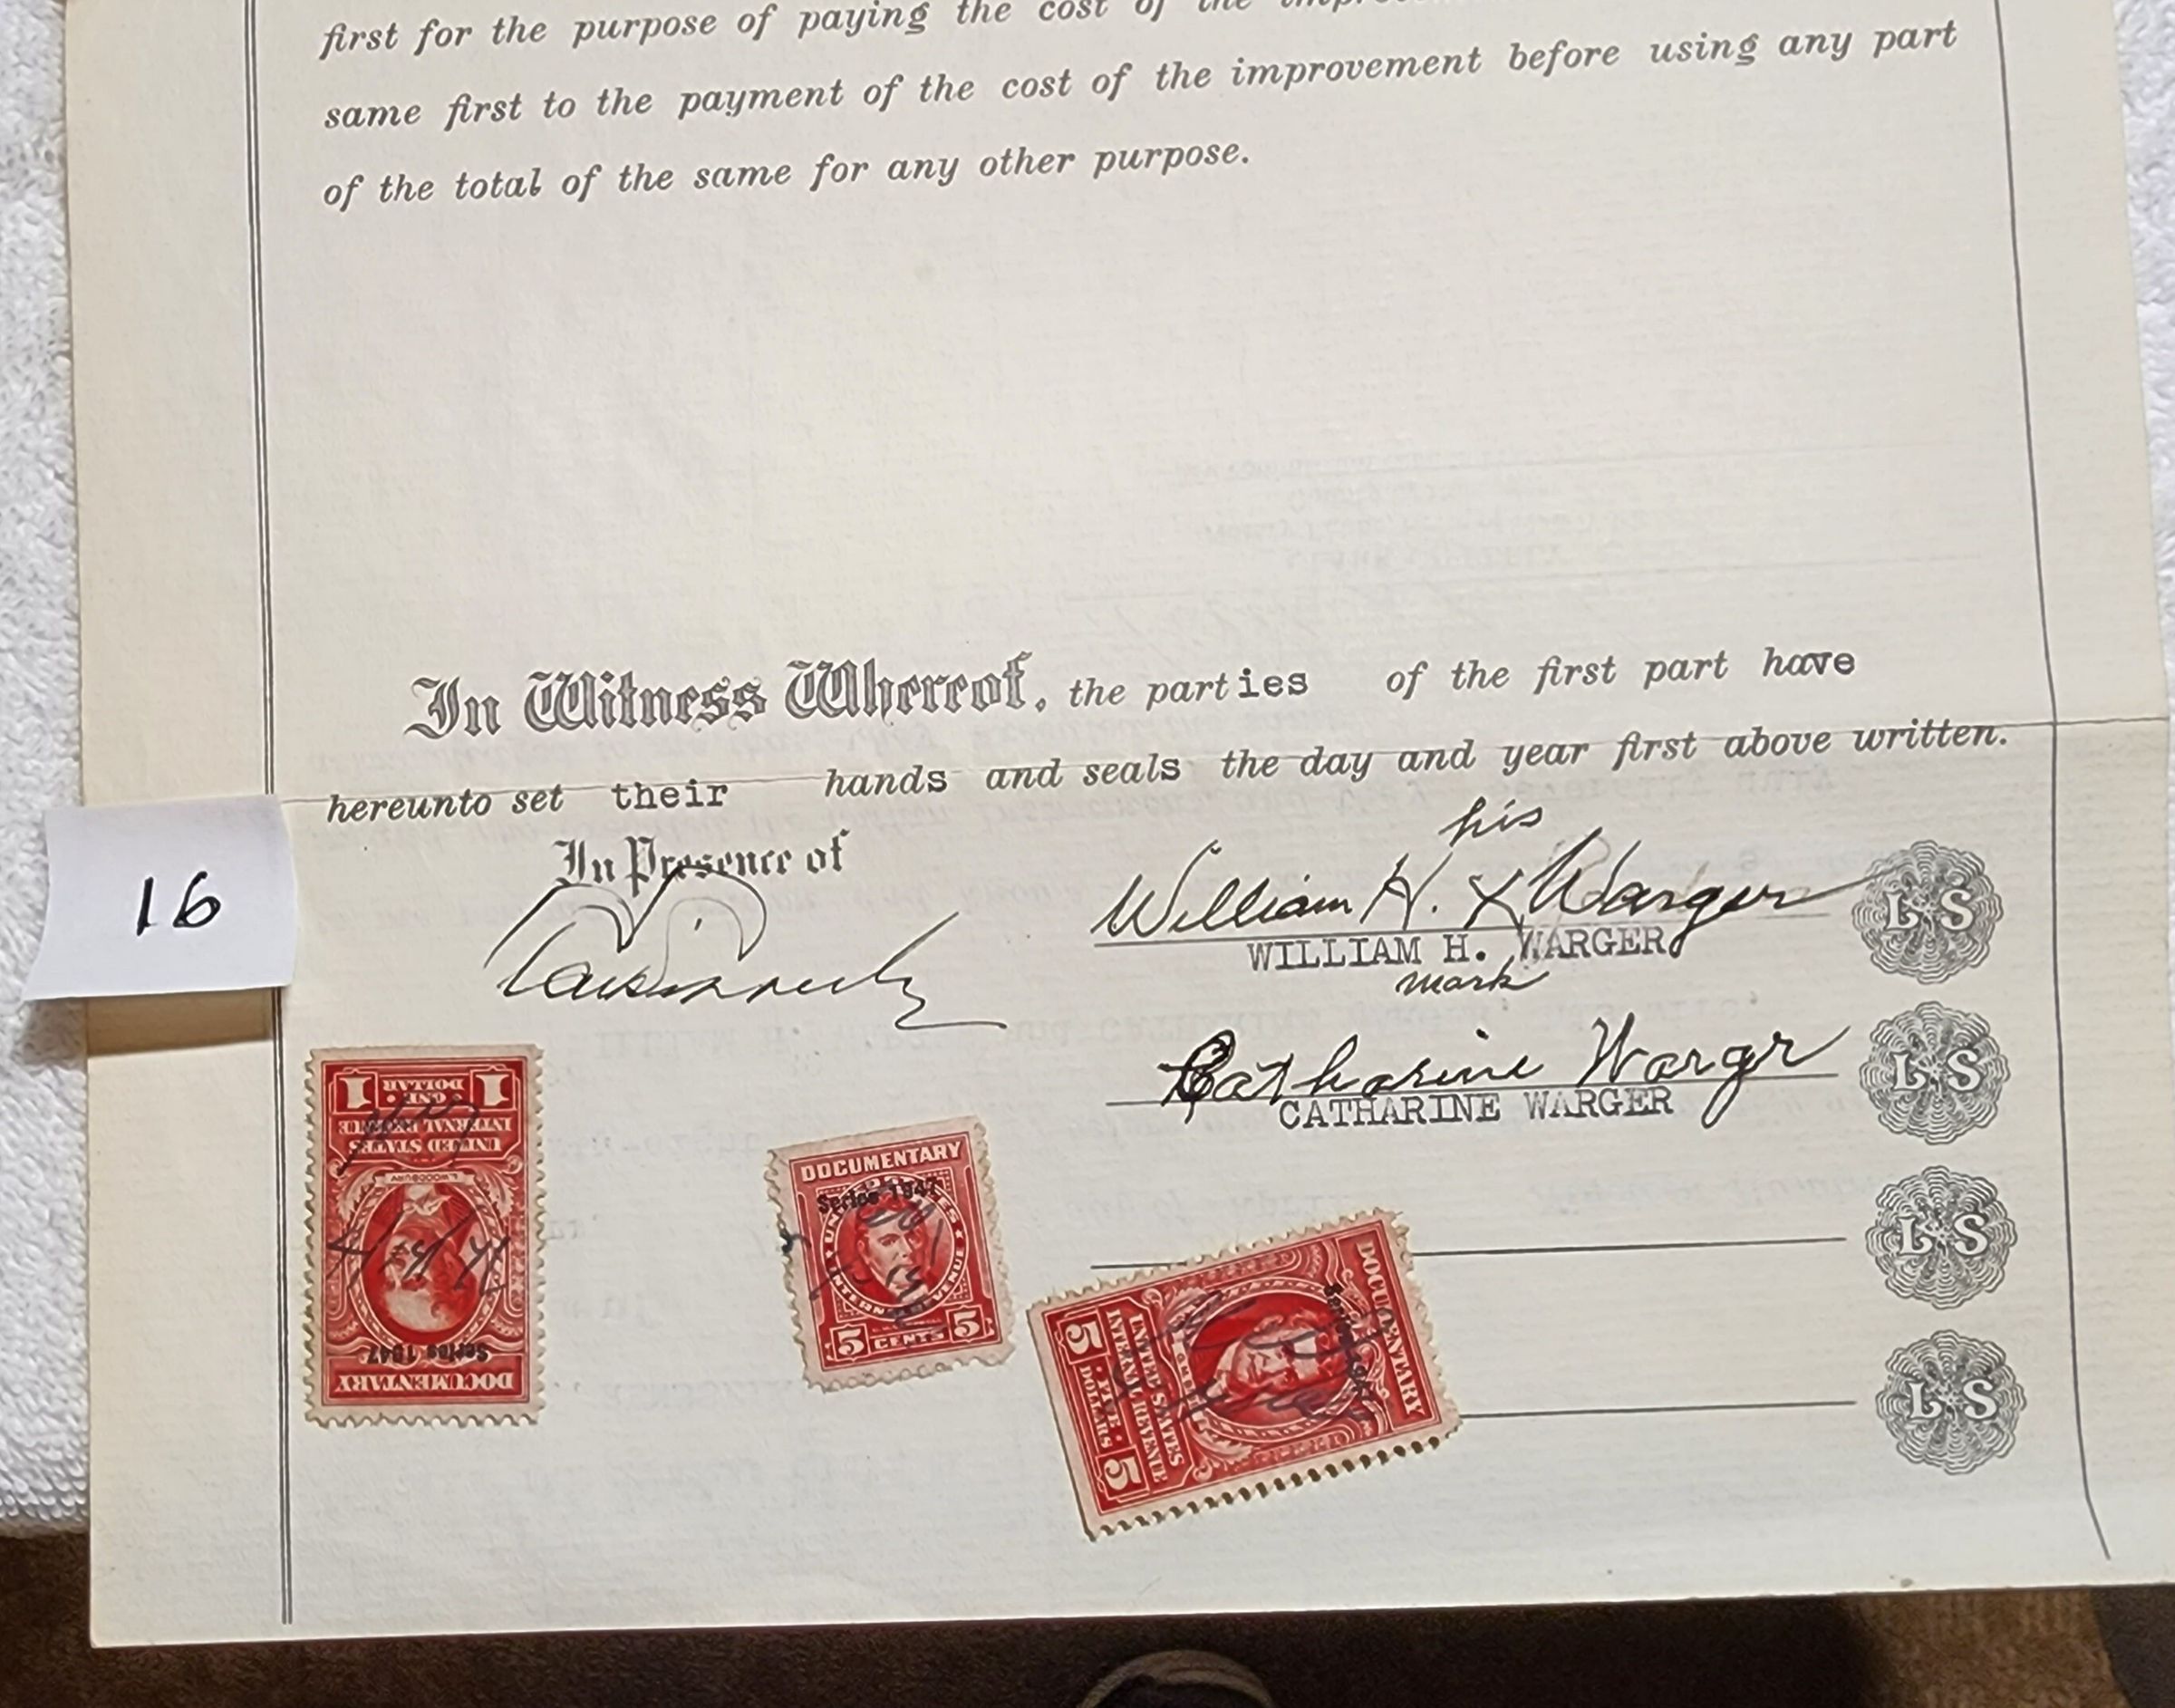 first for the purpose of paying the cost of the
same first to the payment of the cost of the improvement before using any part
of the total of the same for any other purpose.
In Witness Whereof, the parties of the first part have
hereunto set their hands and seals the day and year first above written.
In Presence of
16
his
William H. X Warger
WILLIAM H. WARGER
mark
L S
Catharine Wargr
CATHARINE WARGER
L S
L S
L S
1 ONE DOLLAR 1
UNITED STATES
INTERNAL REVENUE
L. WOODBURY
Series 1947
DOCUMENTARY
DOCUMENTARY
Series 1947
UNITED STATES
INTERNAL REVENUE
5 CENTS 5
DOCUMENTARY
UNITED STATES
INTERNAL REVENUE
5 FIVE DOLLARS 5